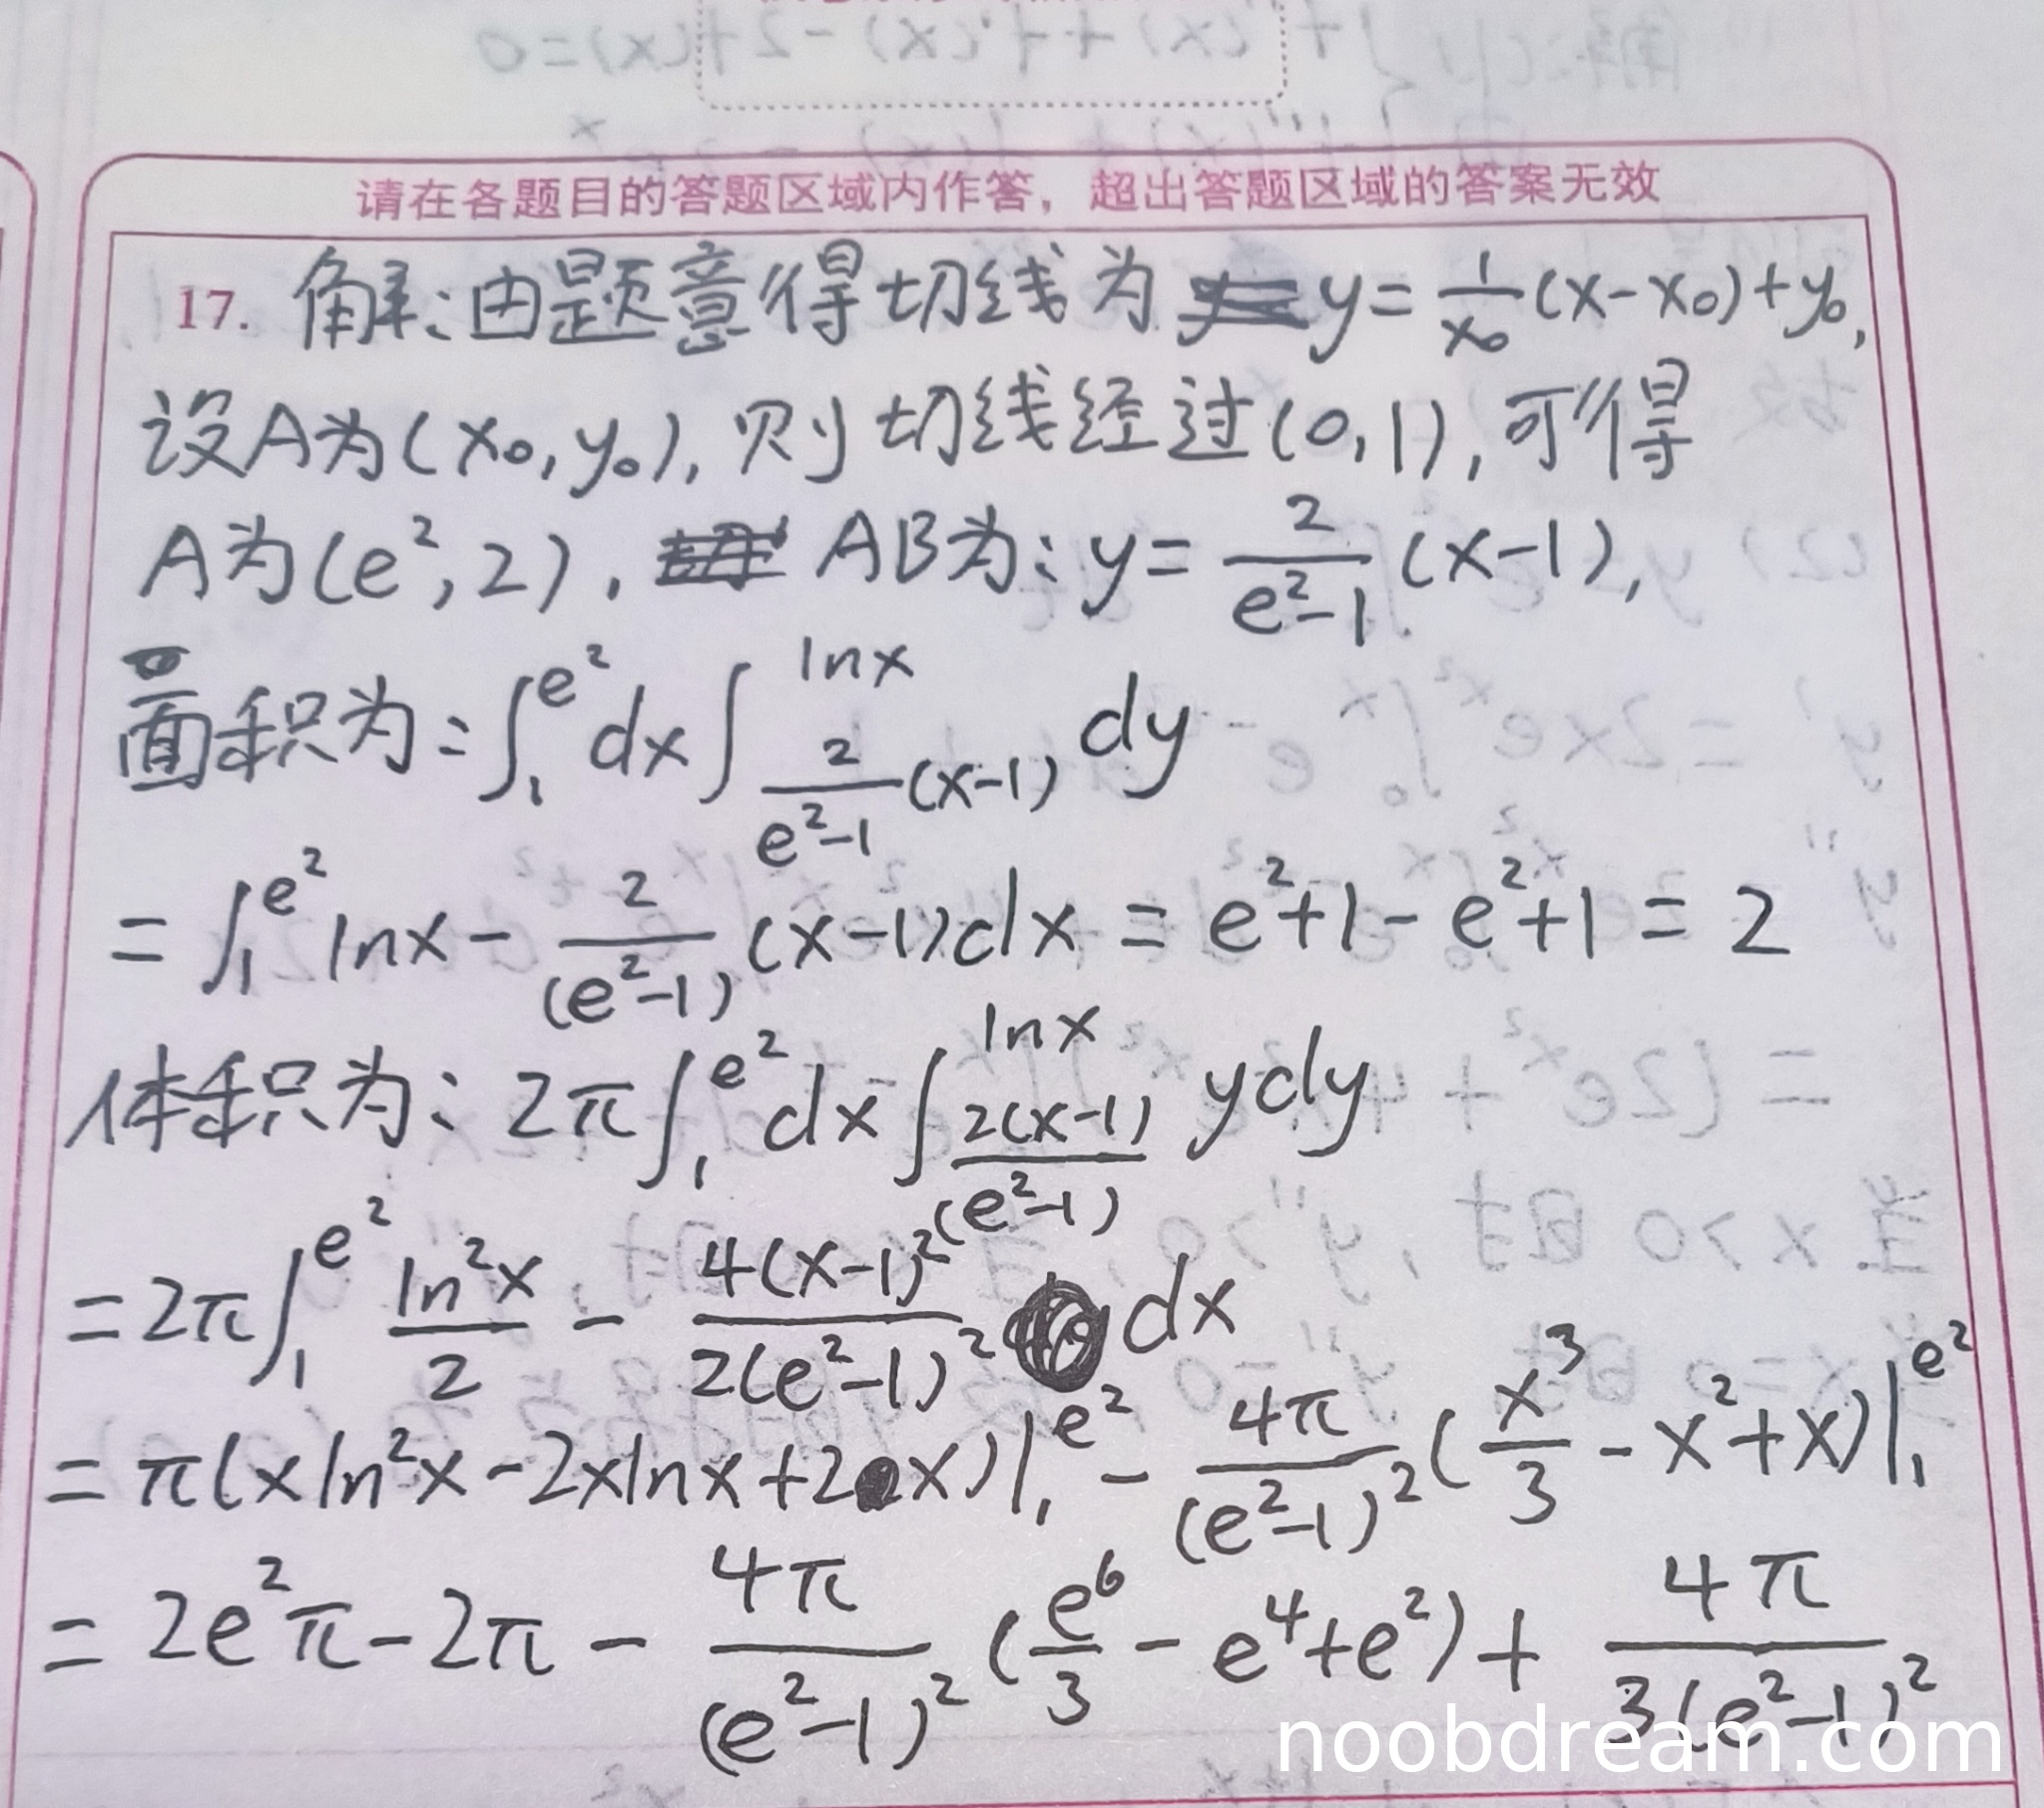 请在各题目的答题区域内作答，超出答题区域的答案无效
17. 解：由题意得切线为 y=\frac{1}{x_0}(x-x_0)+y_0,
设A为(x_0,y_0), 则切线经过(0,1), 可得
A为(e^2,2), AB为: y=\frac{2}{e^2-1}(x-1),
面积为: =\int_1^{e^2}dx\int_{\frac{2}{e^2-1}(x-1)}^{lnx}dy
=\int_1^{e^2}lnx-\frac{2}{(e^2-1)}(x-1)dx=e^2+1-e^2+1=2
体积为: 2π\int_1^{e^2}dx\int_{\frac{2(x-1)}{(e^2-1)}}^{lnx}ydy
=2π\int_1^{e^2}\frac{ln^2x}{2}-\frac{4(x-1)^2}{2(e^2-1)^2}dx
=π(xln^2x-2xlnx+2x)|_1^{e^2}-\frac{4π}{(e^2-1)^2}(\frac{x^3}{3}-x^2+x)|_1^{e^2}
=2e^2π-2π-\frac{4π}{(e^2-1)^2}(\frac{e^6}{3}-e^4+e^2)+\frac{4π}{3(e^2-1)^2}
noobdream.com